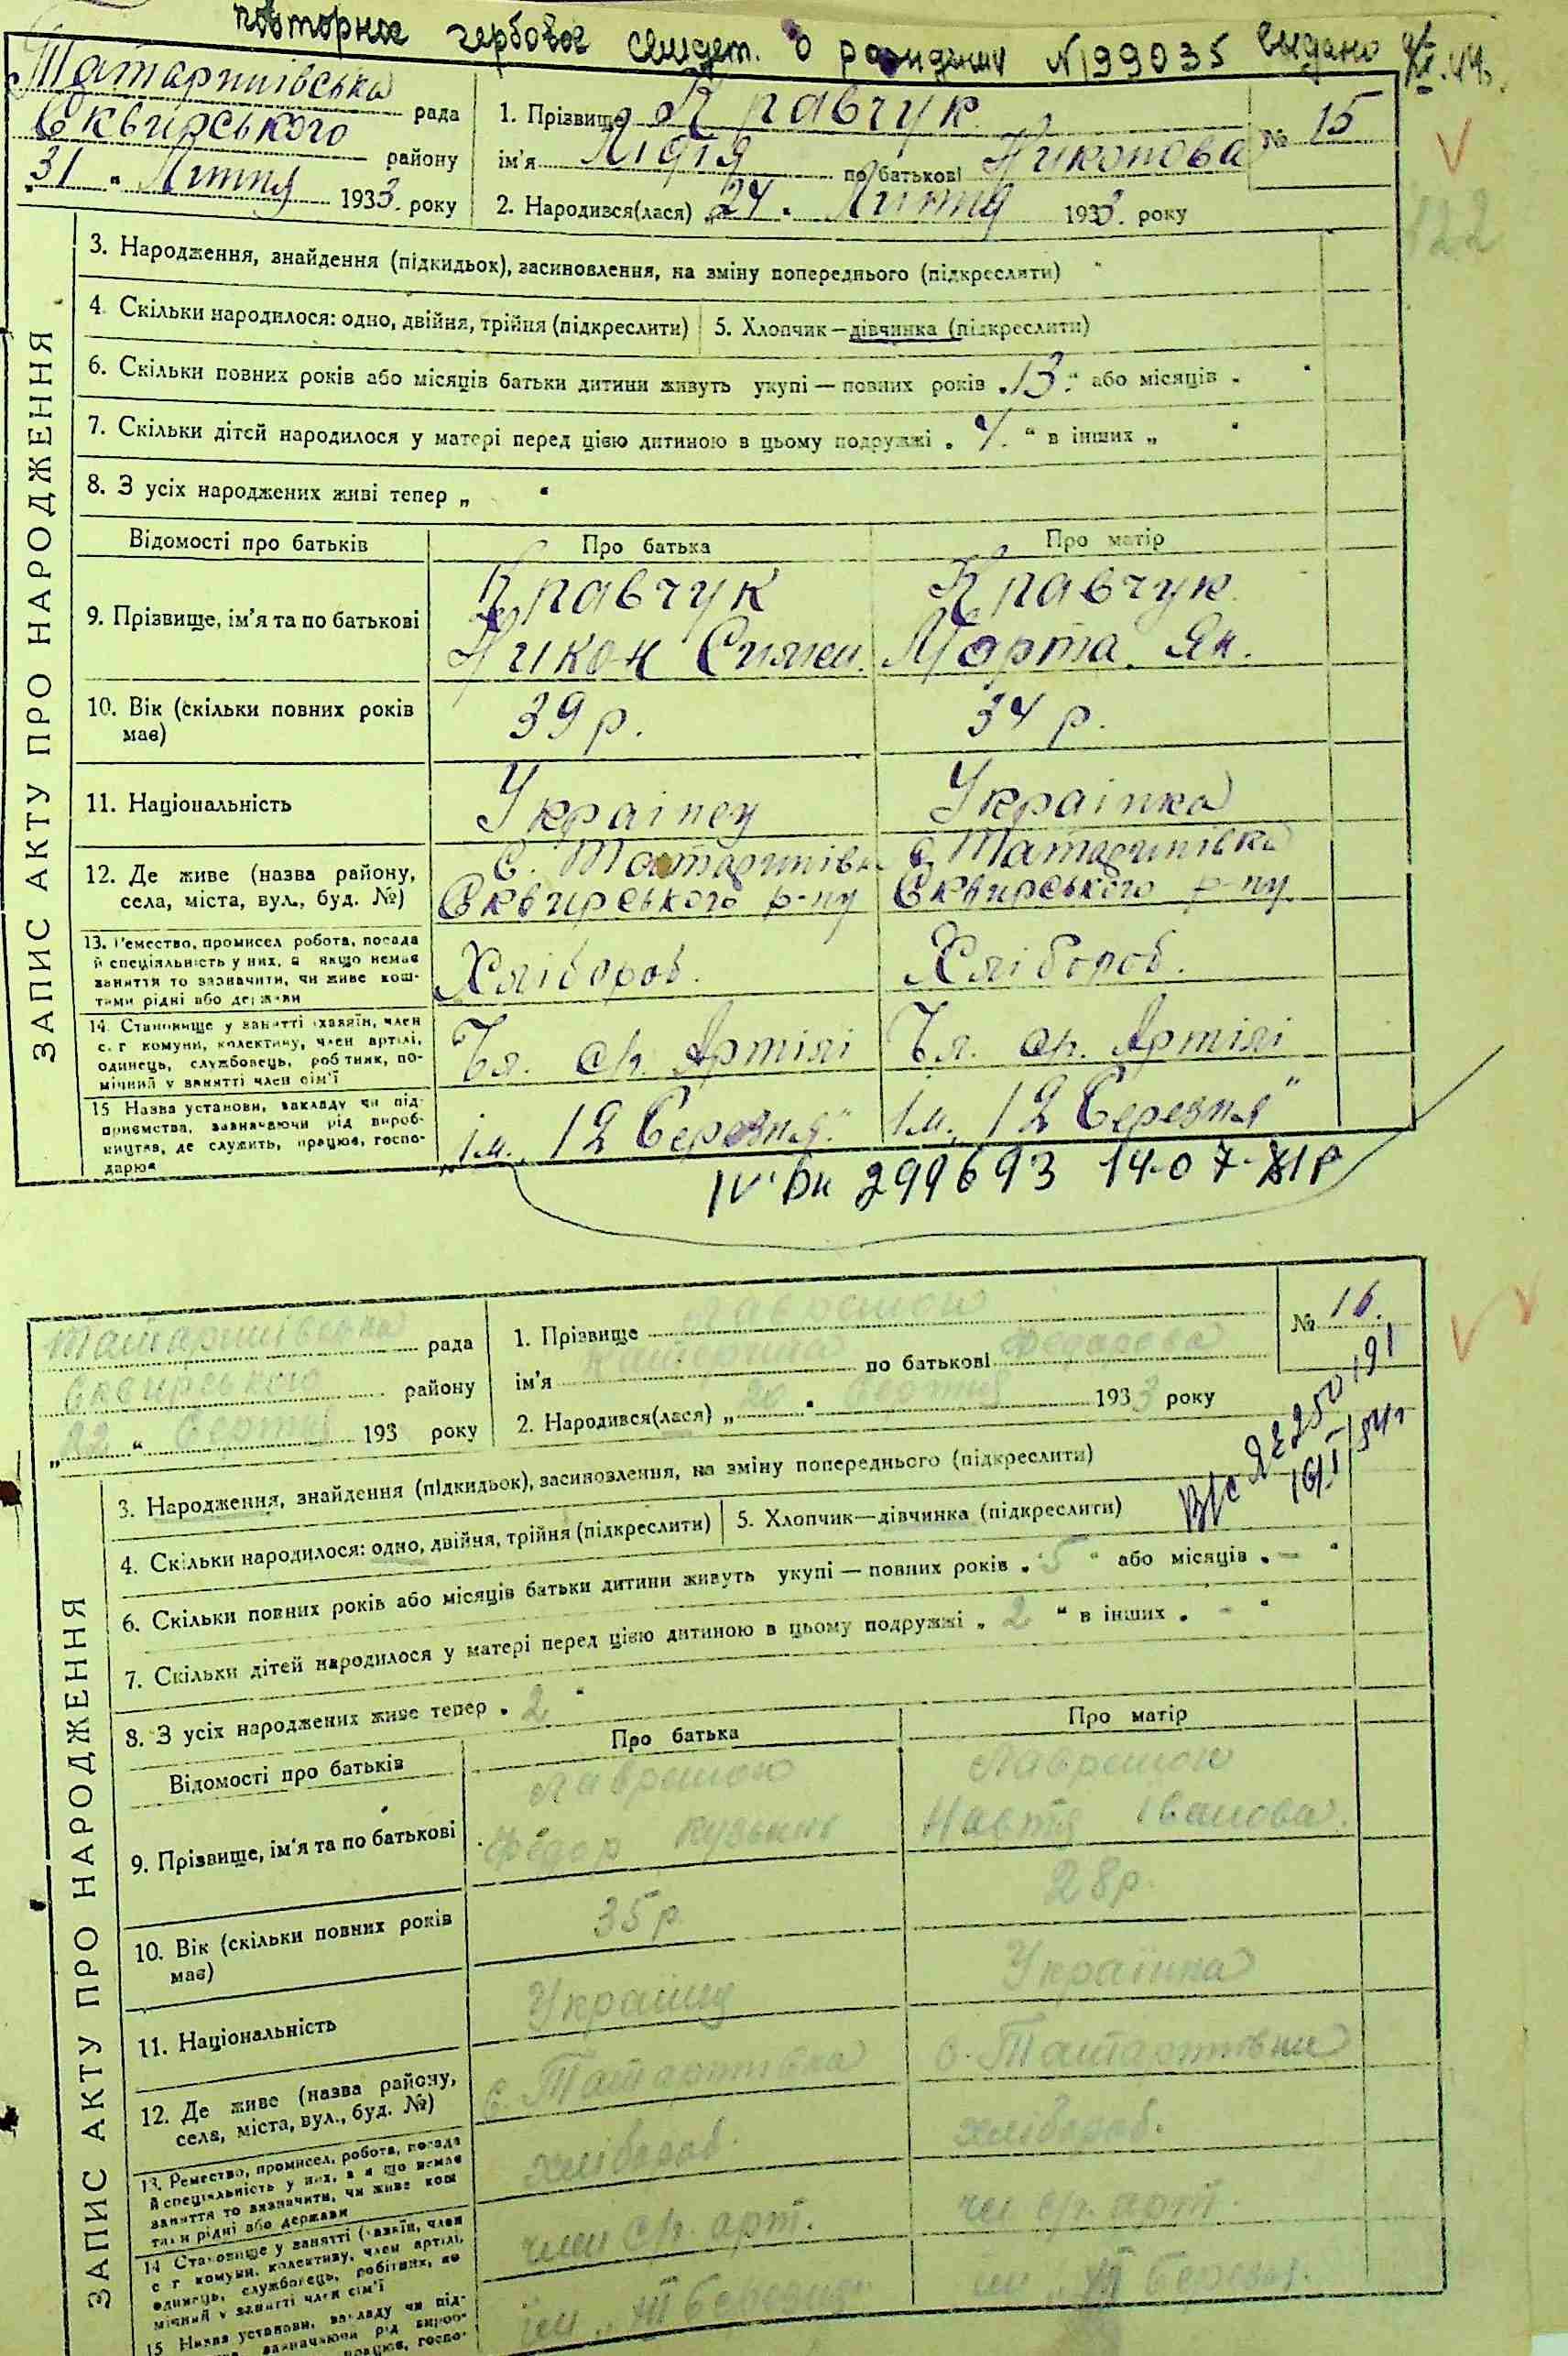 повторное гербовое свидет. о рождении N 199035 выдано
Татаринівська рада
Сквирського району
"31" Липня 1933. року
1. Прізвище Кравчук
ім'я Лідія по батькові Никонова
2. Народився(лася) "24" Липня 1933. року
№ 15
122
ЗАПИС АКТУ ПРО НАРОДЖЕННЯ
3. Народження, знайдення (підкидьок), засиновлення, на зміну попереднього (підкреслити)
4. Скільки народилося: одно, двійня, трійня (підкреслити) 5. Хлопчик—дівчинка (підкреслити)
6. Скільки повних років або місяців батьки дитини живуть укупі — повних років „13“ або місяців „ “
7. Скільки дітей народилося у матері перед цією дитиною в цьому подружжі „ “ в інших „ “
8. З усіх народжених живі тепер „ “
Відомості про батьків Про батька Про матір
9. Прізвище, ім'я та по батькові
Кравчук Кравчук
Никон Марта Як.
10. Вік (скільки повних років має) 39 р. 34 р.
11. Національність Українец Українка
12. Де живе (назва району, села, міста, вул., буд. №)
с. Татаринівка с. Татаринівка
Сквирського р-ну Сквирського р-ну
13. Ремество, промисел робота, посада
й спеціяльність у них, а якщо немає
заняття то зазначити, чи живе кош-
тами рідні або держави
Хлібороб. Хлібороб.
14. Становище у занятті хазяїн, член
с. г комуни, колективу, член артілі,
одинець, службовець, робітник, по-
мічний у занятті член сім'ї
Чл. сп. Артілі Чл. сп. Артілі
15 Назва установи, закладу чи під-
приємства, зазначаючи рід вироб-
ництва, де служить, працює, госпо-
дарює
ім. „12 Березня“ ім. „12 Березня“
299693 14-07-81р
Татаринівська рада
Сквирського району
„22“ Серпня 193 року
1. Прізвище
ім'я Катерина по батькові Федорова
2. Народився(лася) „20“ 1933 року
№ 16.
ЗАПИС АКТУ ПРО НАРОДЖЕННЯ
3. Народження, знайдення (підкидьок), засиновлення, на зміну попереднього (підкреслити)
4. Скільки народилося: одно, двійня, трійня (підкреслити) 5. Хлопчик—дівчинка (підкреслити)
6. Скільки повних років або місяців батьки дитини живуть укупі — повних років „5“ або місяців „—“
7. Скільки дітей народилося у матері перед цією дитиною в цьому подружжі „2“ в інших „-“
8. З усіх народжених живе тепер „2“
Відомості про батьків Про батька Про матір
9. Прізвище, ім'я та по батькові
Федор Кузьмич Настя Іванова.
10. Вік (скільки повних років має) 35 р. 28 р.
11. Національність Українец Українка
12. Де живе (назва району, села, міста, вул., буд. №)
с. Татаринівка с. Татаринівка
13. Ремество, промисел, робота, посада
й спеціяльність у них, а якщо немає
заняття то визначити, чи живе кош
тами рідні або держави
хлібороб хлібороб.
14 Становище у занятті (хазяїн, член
с г комуни, колективу, член артілі,
одинець, службовець, робітник, по
мічний у занятті член сім'ї
член с/г. арт. чл с/г. арт.
15 Назва установи, закладу чи під-
зазначаючи рід вироб-
працює, госпо-
ім „ Березня ім „ Березня